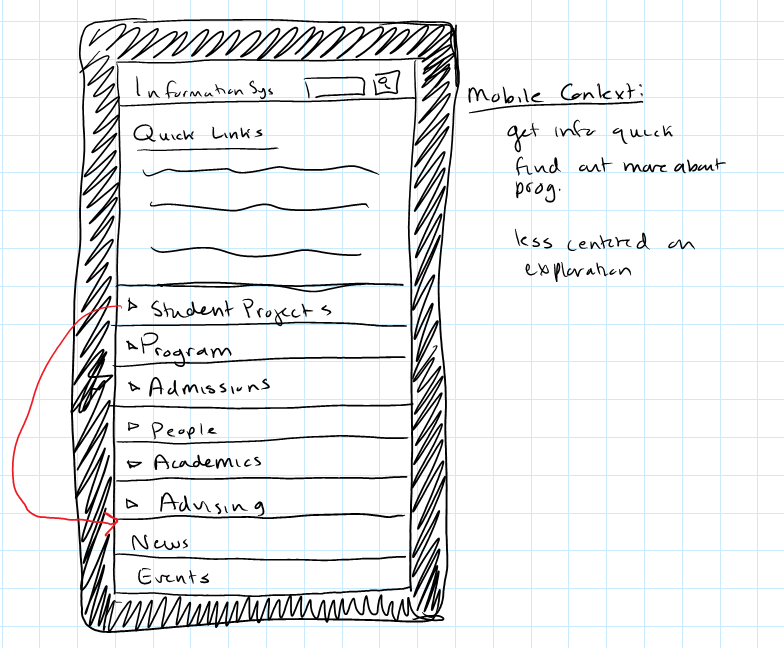 Information Sys
Quick Links
Student Projects
Program
Admissions
People
Academics
Advising
News
Events
Mobile Context:
get info quick
find out more about
prog.
less centered on
exploration